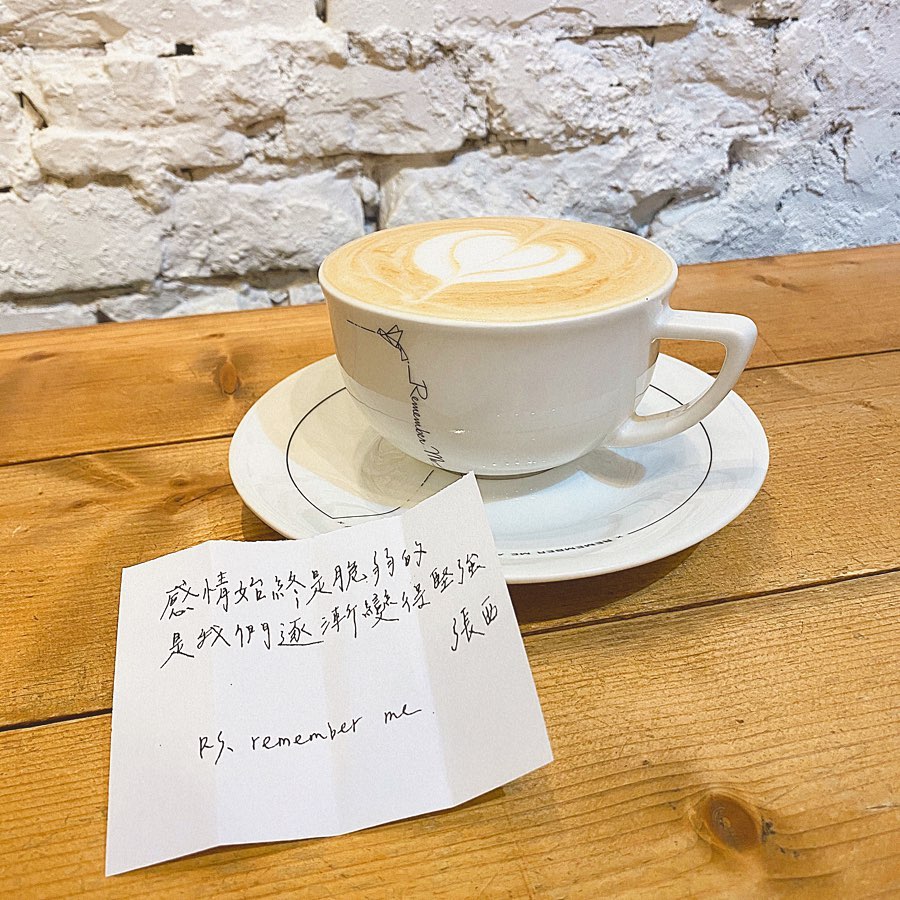 Remember Me
REMEMBER ME
感情始終是脆弱的
是我們逐漸變得堅強
張西
P.S. remember me